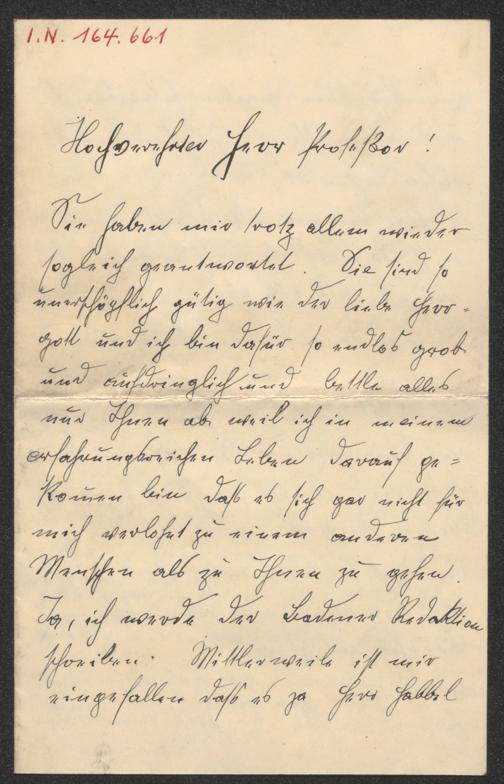 I.N. 164.661
Hochverehrter Herr Professor!
Sie haben mir trotz allem wieder
sogleich geantwortet. Sie sind so
unerschöpflich gütig wie der liebe Herr=
gott und ich bin dafür so endlos grob
und aufdringlich und bettle alles
nur Ihnen ab weil ich in meinem
erfahrungsreichen Leben darauf ge=
kommen bin daß es sich gar nicht für
mich verlohnt zu einem anderen
Menschen als zu Ihnen zu gehen.
Ja, ich werde der Badener Redaktion
schreiben. Mittlerweile ist mir
eingefallen daß es ja Herr Habbel